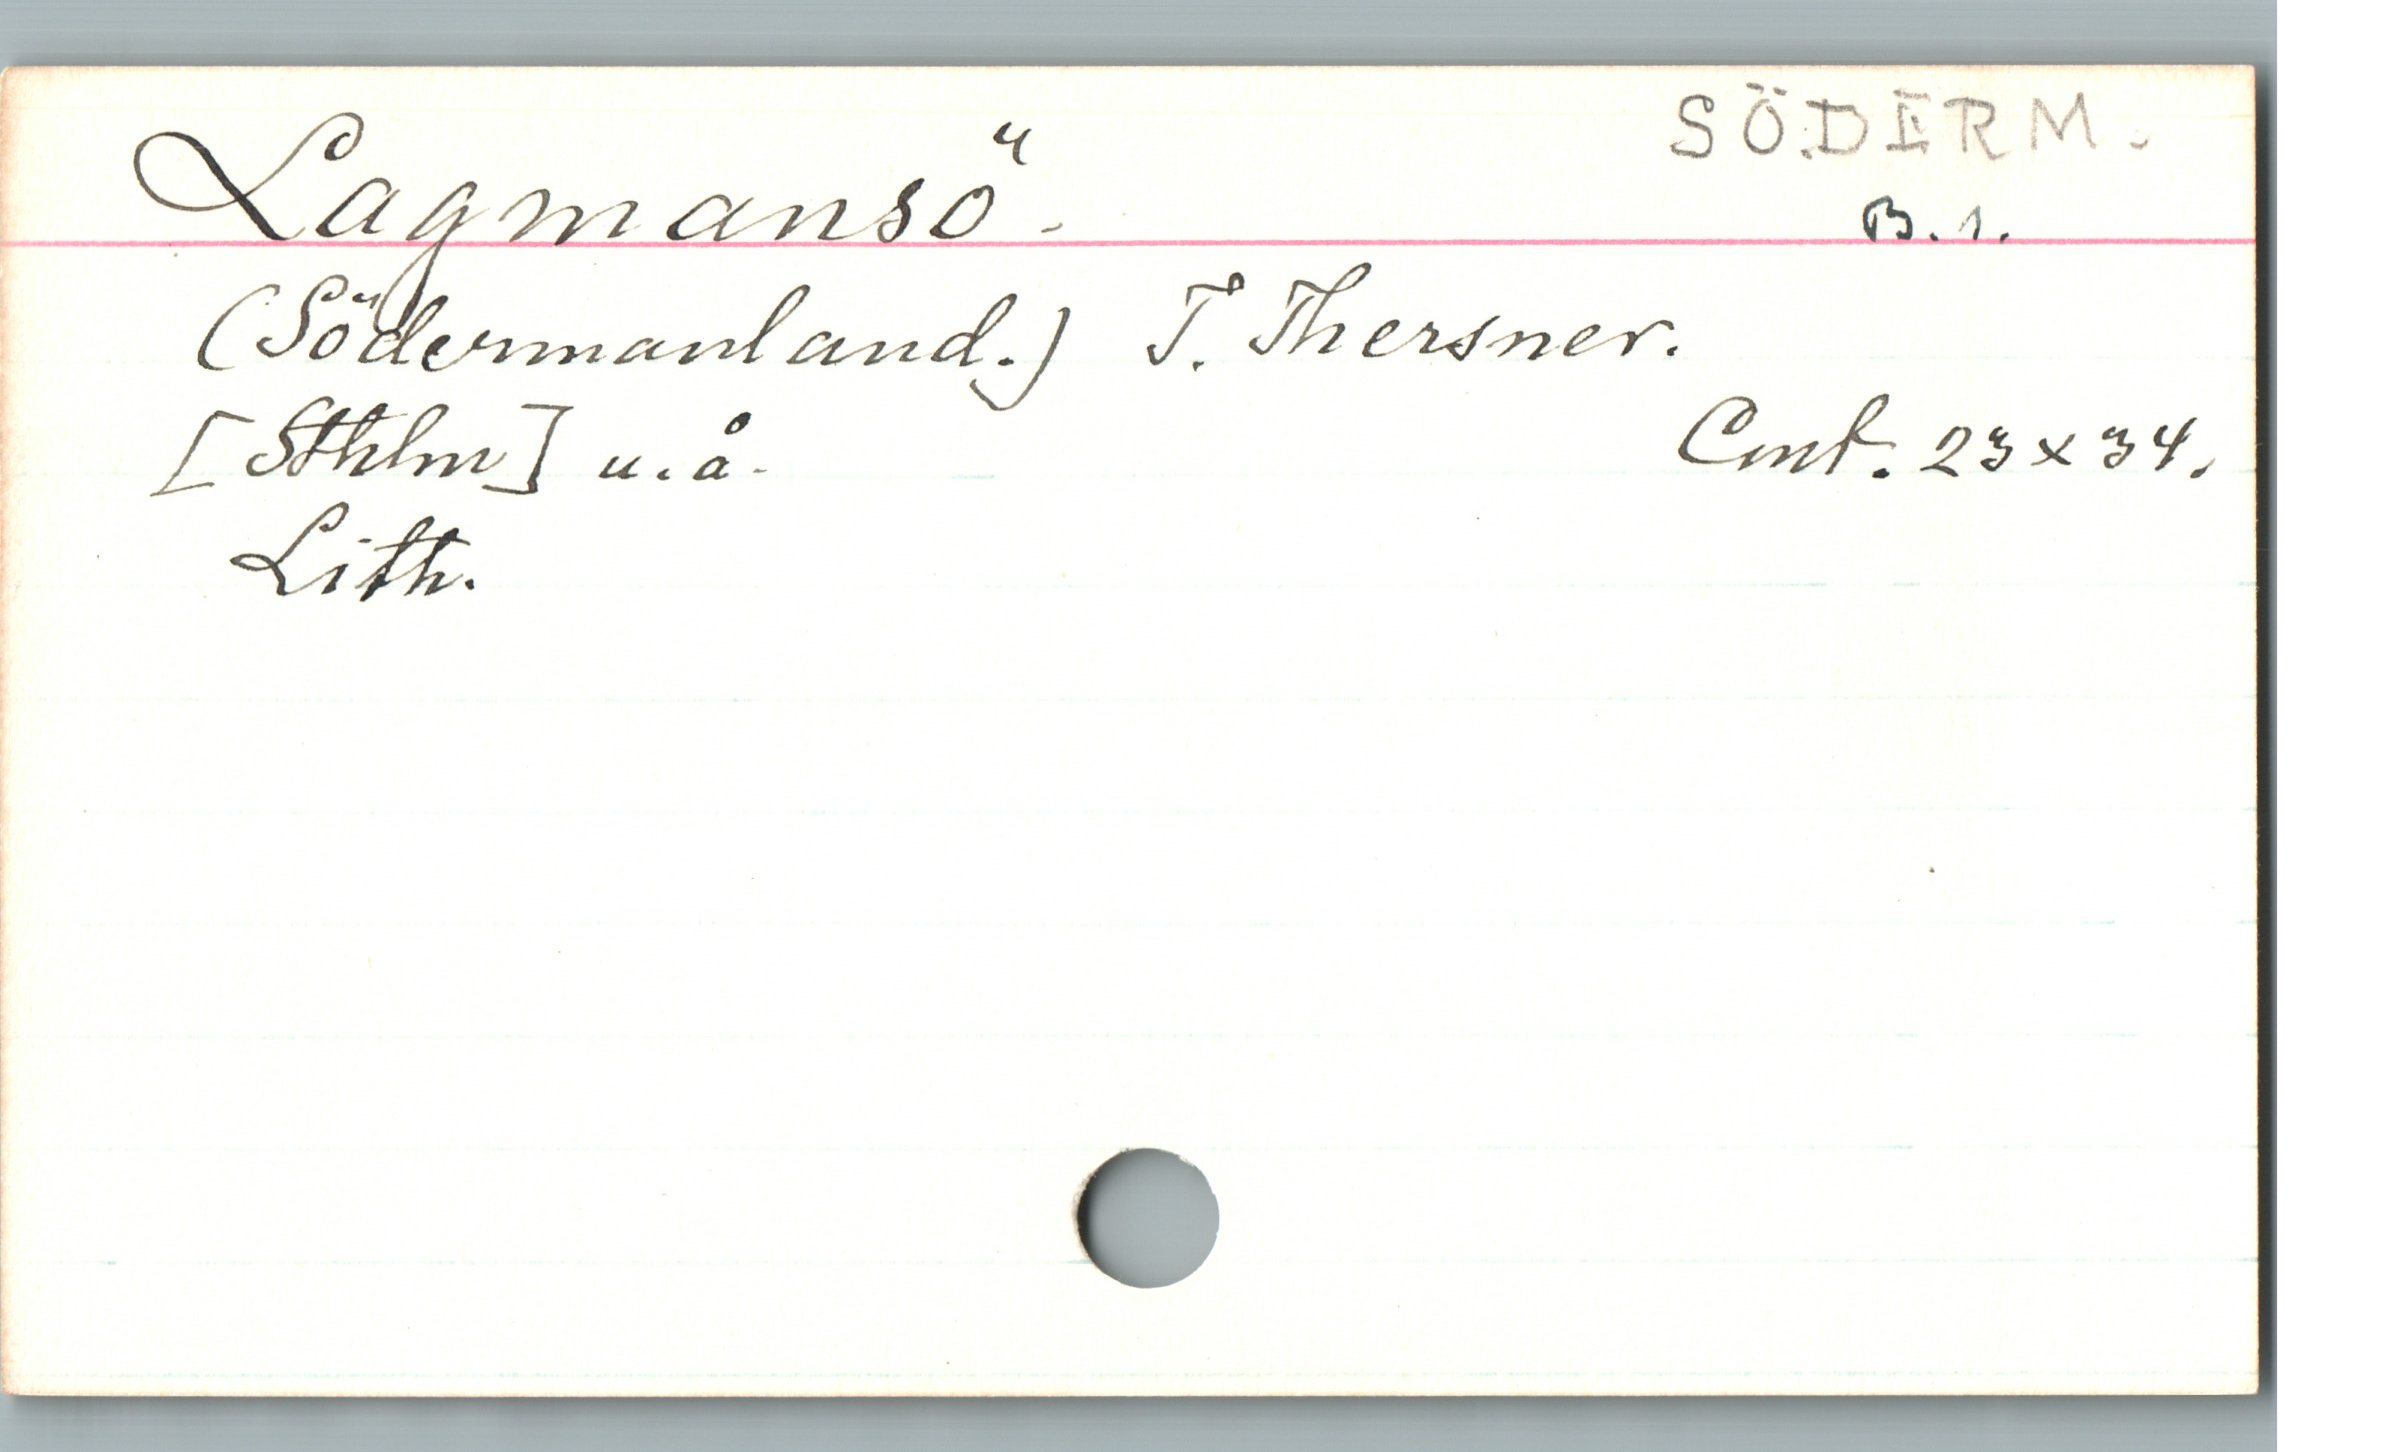 SÖDERM.
Lagmansö.
B. 1.
(Södermanland.) T. Thersner.
[Sthlm] u. å.
Cmf. 23 x 34.
Lith.